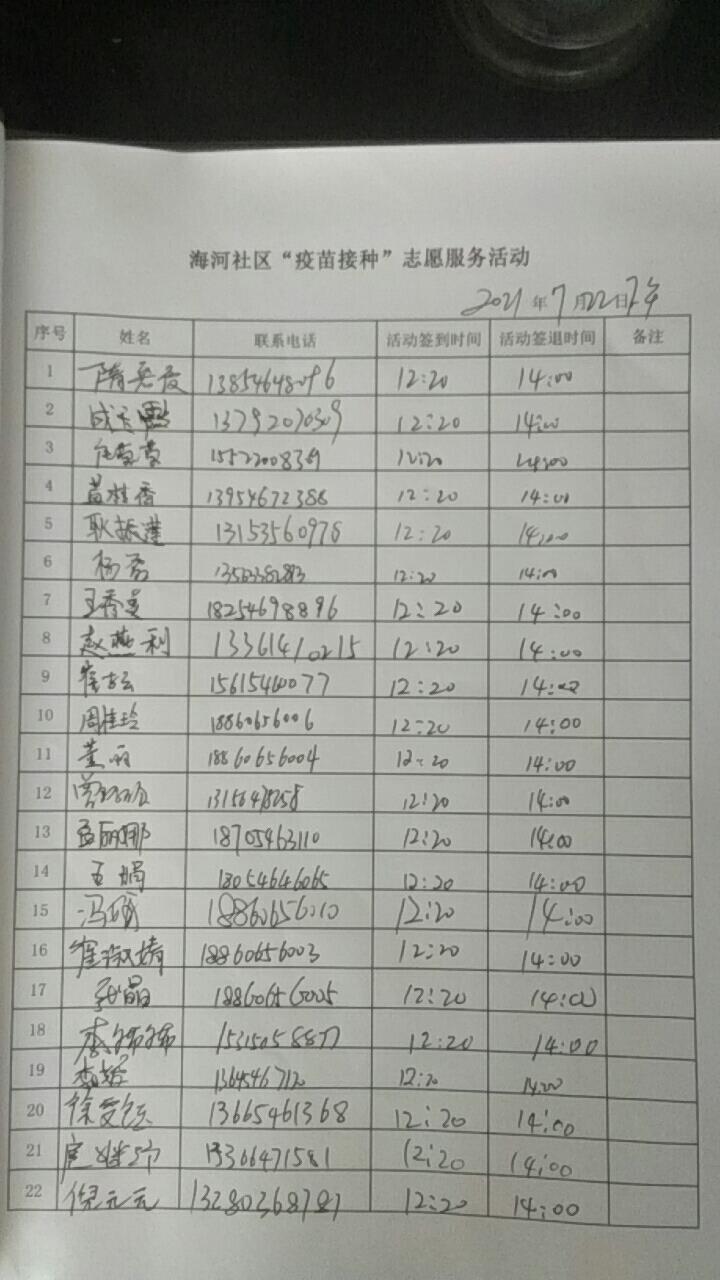 海河社区“疫苗接种”志愿服务活动
2021年7月22日下午
序号 姓名 联系电话 活动签到时间 活动签退时间 备注
1 12:20 14:00
2 13792070309 12:20 14:00
3 12:20 14:00
4 苗桂香 13954672388 12:20 14:00
5 耿振莲 13153560978 12:20 14:00
6 杨秀 12:20 14:00
7 王秀美 18254698896 12:20 14:00
8 赵燕利 13361410215 12:20 14:00
9 15615440077 12:20 14:00
10 周佳玲 18860656006 12:20 14:00
11 董丽 18860656004 12:20 14:00
12 12:20 14:00
13 孟丽娜 18705463110 12:20 14:00
14 王娟 18054646065 12:20 14:00
15 18860656010 12:20 14:00
16 崔淑婧 18860656003 12:20 14:00
17 张晶 18860656005 12:20 14:00
18 李娜娜 15315058877 12:20 14:00
19 12:20 14:00
20 13665461368 12:20 14:00
21 15366471581 12:20 14:00
22 倪元元 13280368787 12:20 14:00